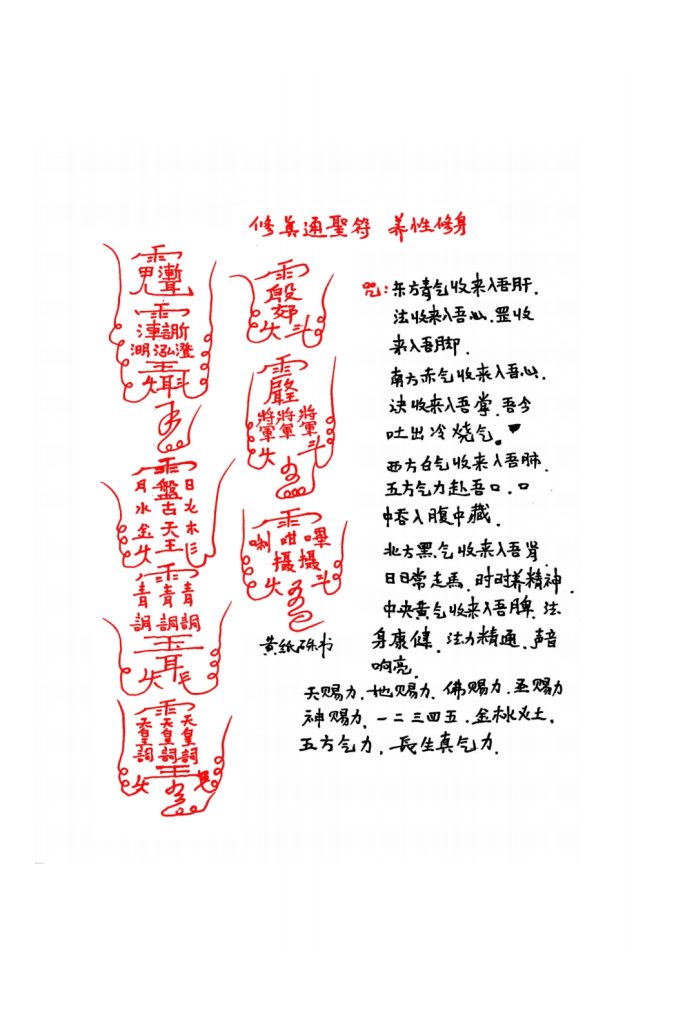 修真通聖符 养性修身
咒:东方青气收来入吾肝.
法收来入吾心.罡收
来入吾脚.
南方赤气收来入吾心.
决收来入吾掌.吾今
吐出冷烧气。
西方白气收来入吾肺.
五方气力赴吾口.口
中吞入腹中藏.
北方黑气收来入吾肾
日日常走馬.时时养精神.
中央黄气收来入吾脾.法
身康健.法力精通.声音
响亮.
天赐力.地赐力.佛赐力.圣赐力
神赐力.一二三四五.金木水火土.
五方气力.長生真气力.
黄纸硃书
月 盤 日
水 古 火
金 天 木
失 王
青 青 青
詞 詞 詞
天皇詞 天皇詞 天皇詞
失 斗
將軍 將軍 將軍
失 斗
喇 呾 嗶
摄 摄
失 斗